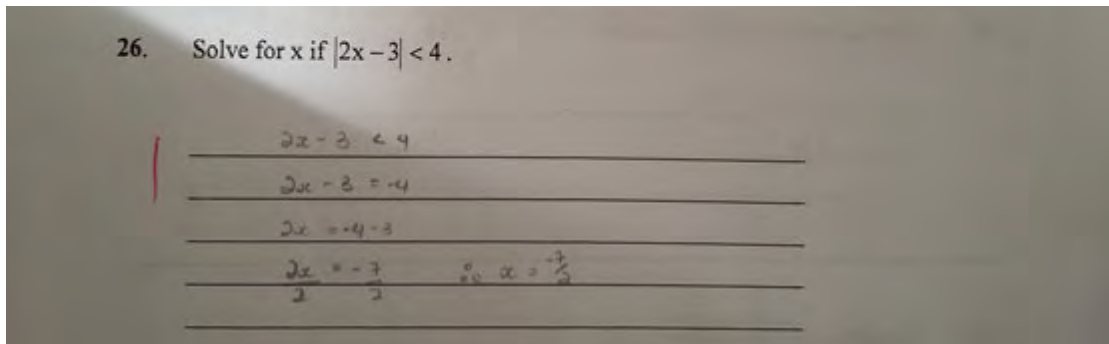 26. Solve for x if |2x – 3| < 4.
2x - 3 < 4
2x - 3 = -4
2x = -4 - 3
2x/2 = -7/2 ∴ x = -7/2